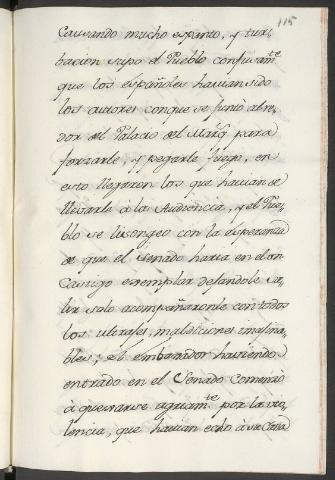 115
Causando mucho espanto, y tur-
bacion supo el Pueblo confusamte
que los españoles havian sido
los autores conque se juntò alre-
dor del Palacio del Marq para
forzarle, y pegarle fuego, en
esto llegaron los que havian de
llevarle à la Audiencia, y el Pue-
blo se lisongeo con la esperanza
de que el senado haria en el un
Castigo exemplar dejandole sa-
lir solo acompañaronle con todos
los ultrajes, maldiciones imagina-
bles; el embaxador haviendo
entrado en el Senado comenzò
à quexarse agriamte por la vio-
lencia, que havian echo à su Cassa